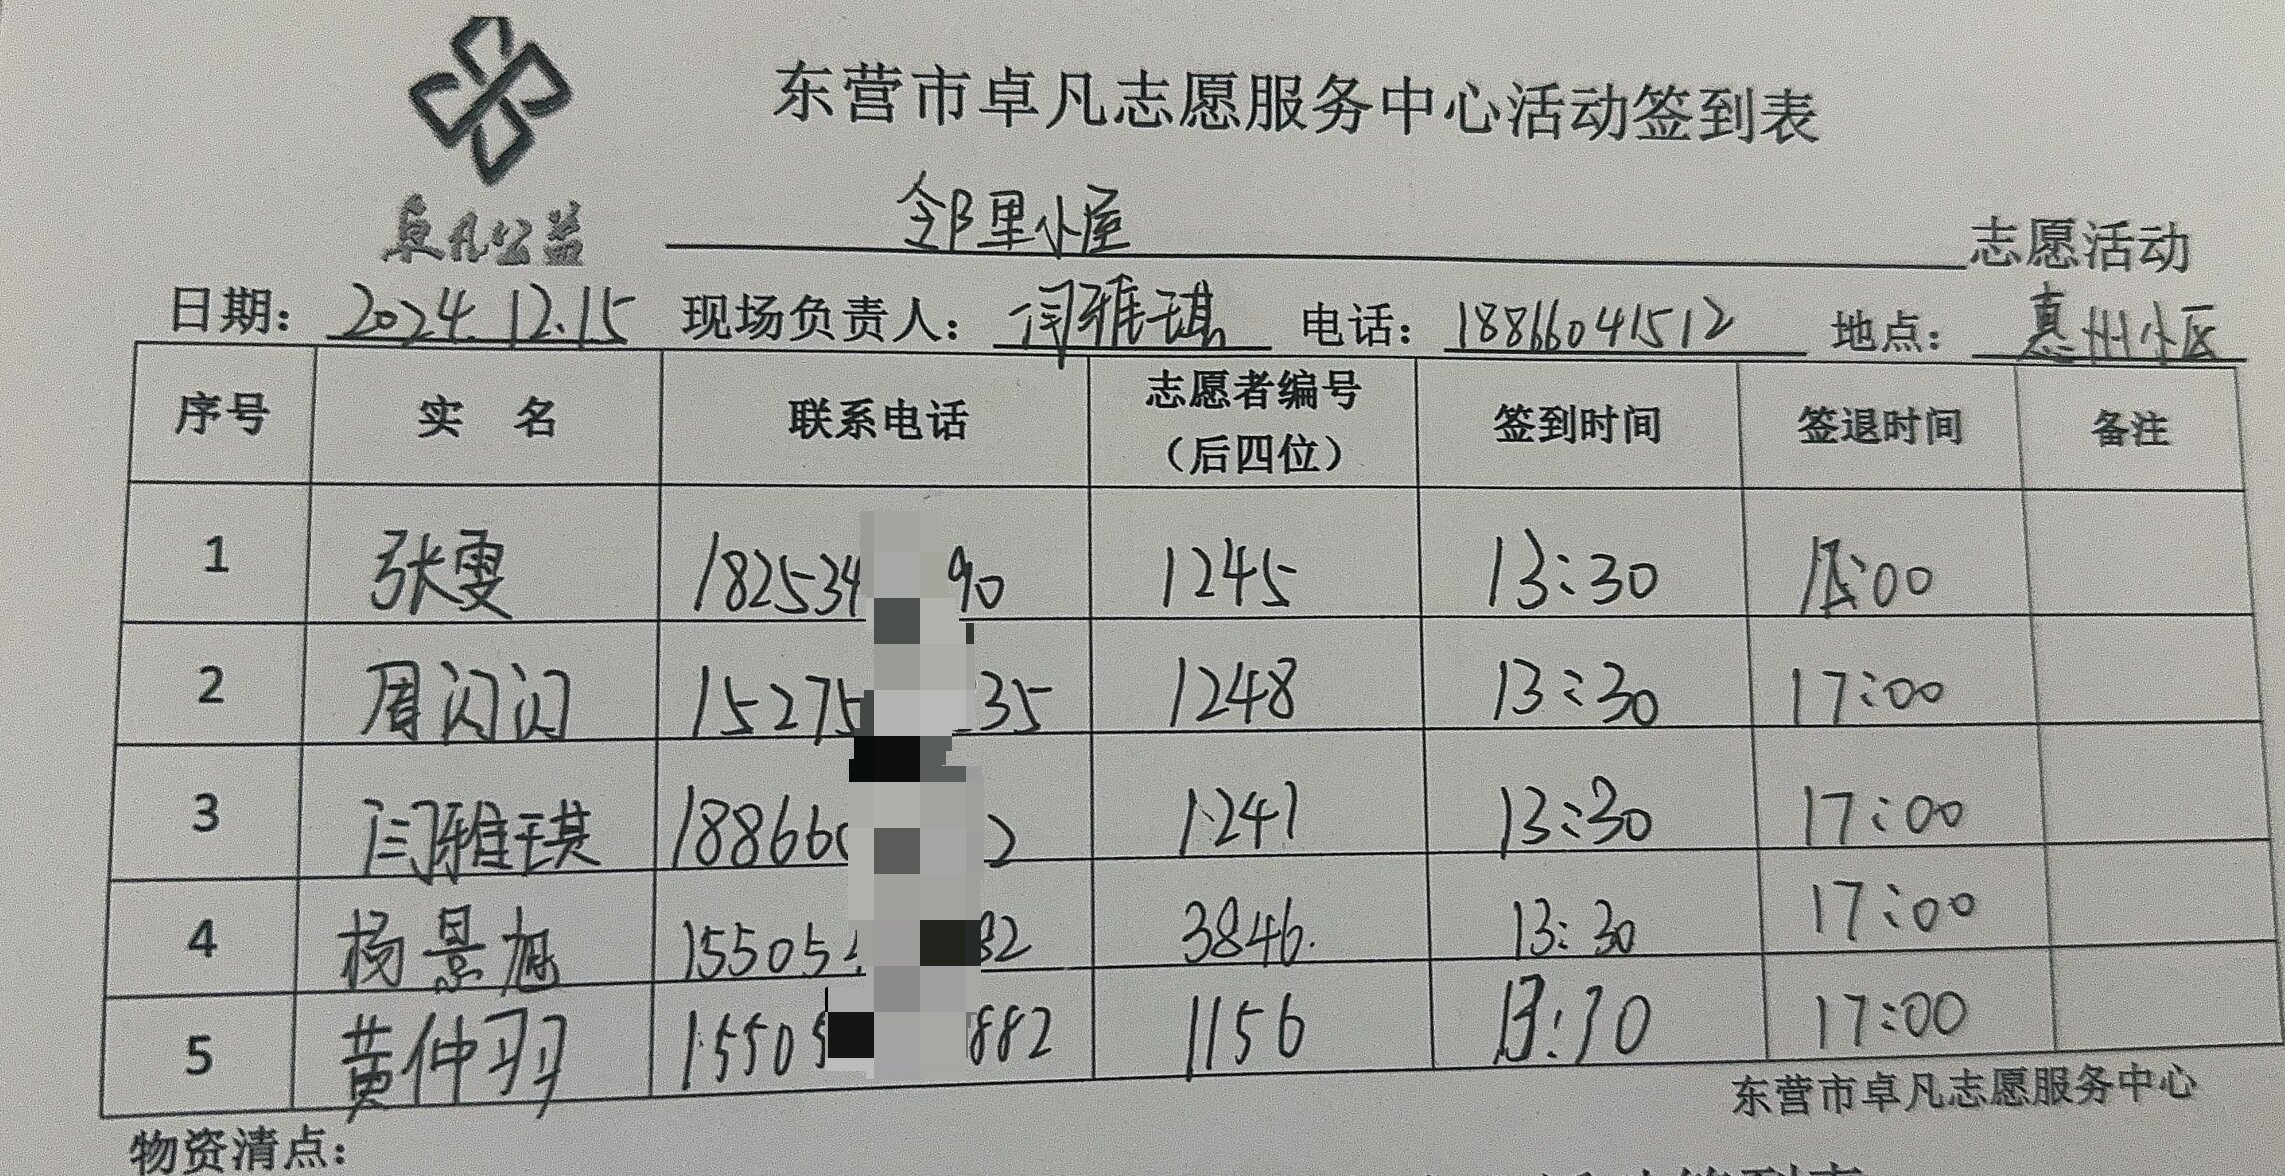 东营市卓凡志愿服务中心活动签到表
卓凡公益
邻里小屋 志愿活动
日期：2024.12.15 现场负责人：闫雅琪 电话：18866041512 地点：惠州小区
序号 实 名 联系电话 志愿者编号（后四位） 签到时间 签退时间 备注
1 张雯 18253490 1245 13:30 :00
2 周闪闪 1527535 1248 13:30 17:00
3 闫雅琪 188662 1241 13:30 17:00
4 杨景旭 15505 82 3846. 13:30 17:00
5 黄仲羽 1550882 1156 13:30 17:00
东营市卓凡志愿服务中心
物资清点：